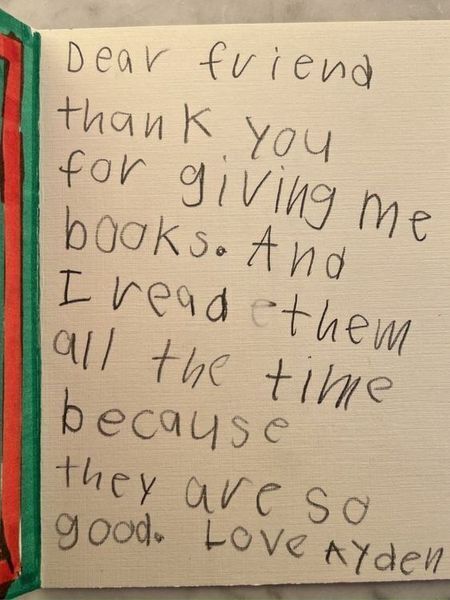 Dear friend
thank you
for giving me
books. And
I read them
all the time
because
they are so
good. Love Ayden